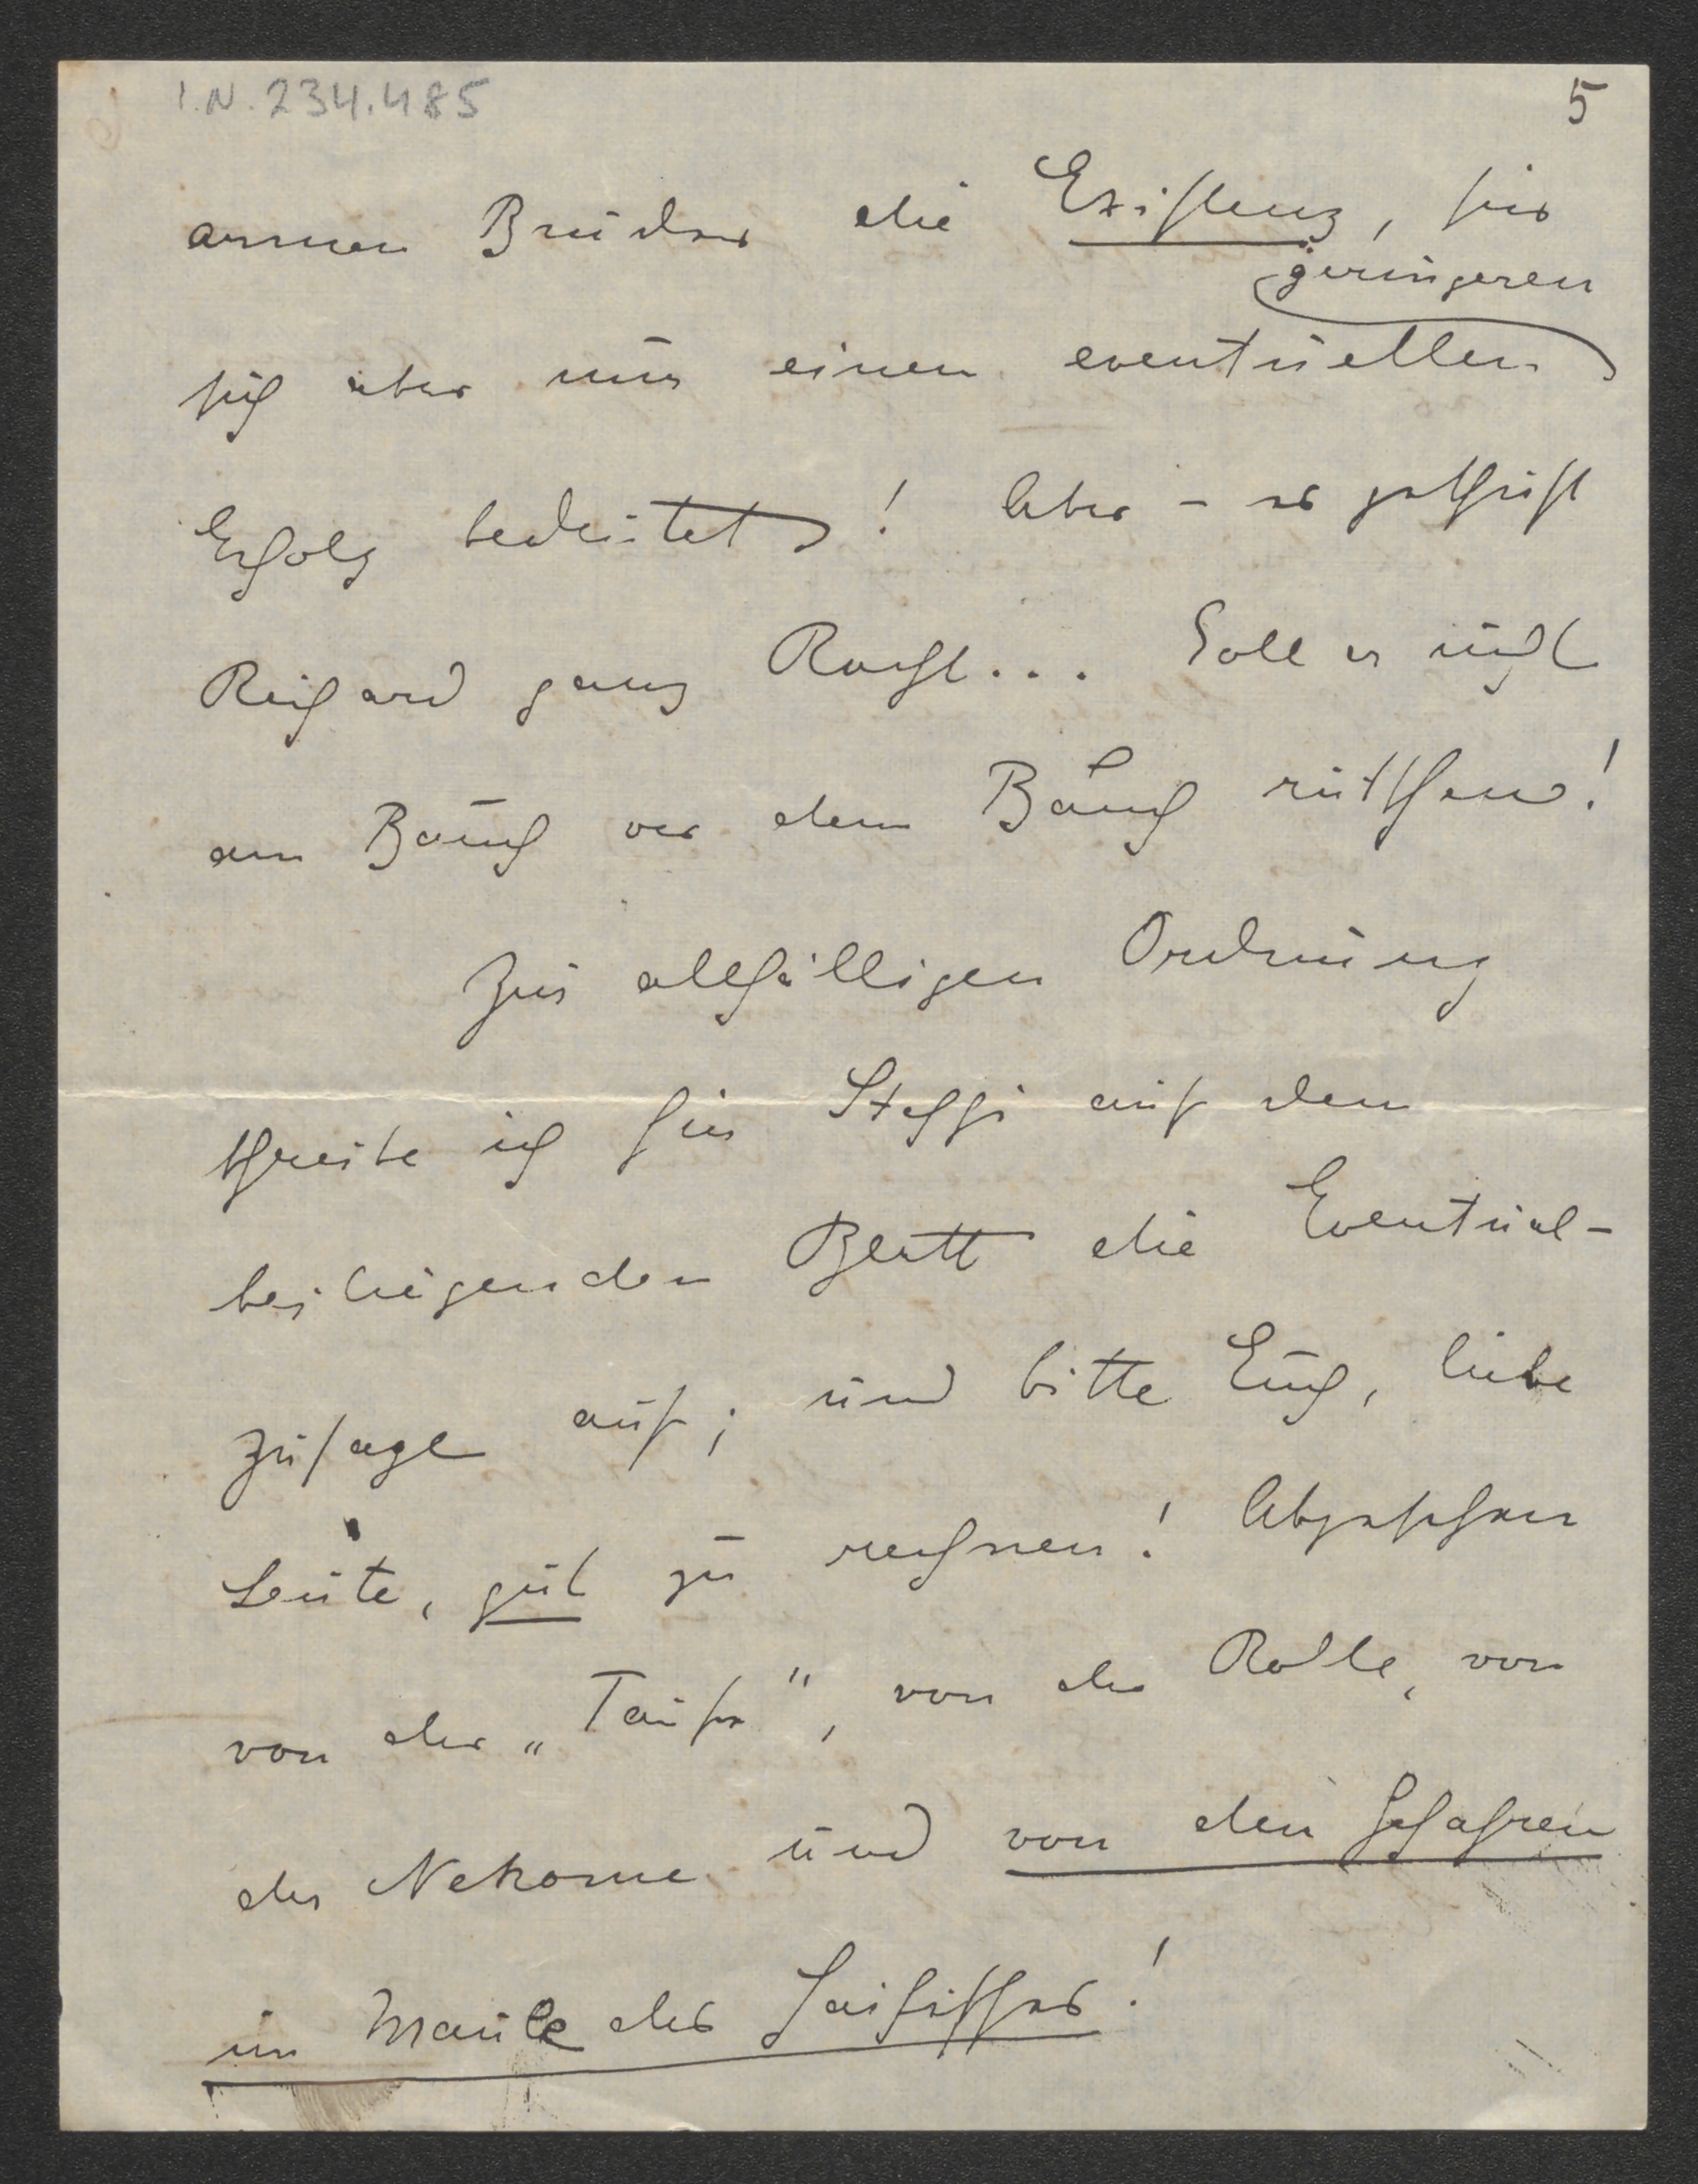 I.N. 234.485
5
armen Bruder die Existenz, für
geringeren
sich aber nur einen eventuellen
Erfolg bedeutet! Aber – es geschieht
Richard ganz Recht... Soll er nicht
am Bauch vor dem Bauch rutschen!
Zur allfälligen Ordnung
schreibe ich für Steffi auf dem
beiliegenden Blatt die Eventual-
zusage auf; und bitte Euch, liebe
Leute, gut zu rechnen! Abgesehen
von der „Taufe", von der Rolle, von
der Nekome und von den Gefahren
im Maule des Haifisches!